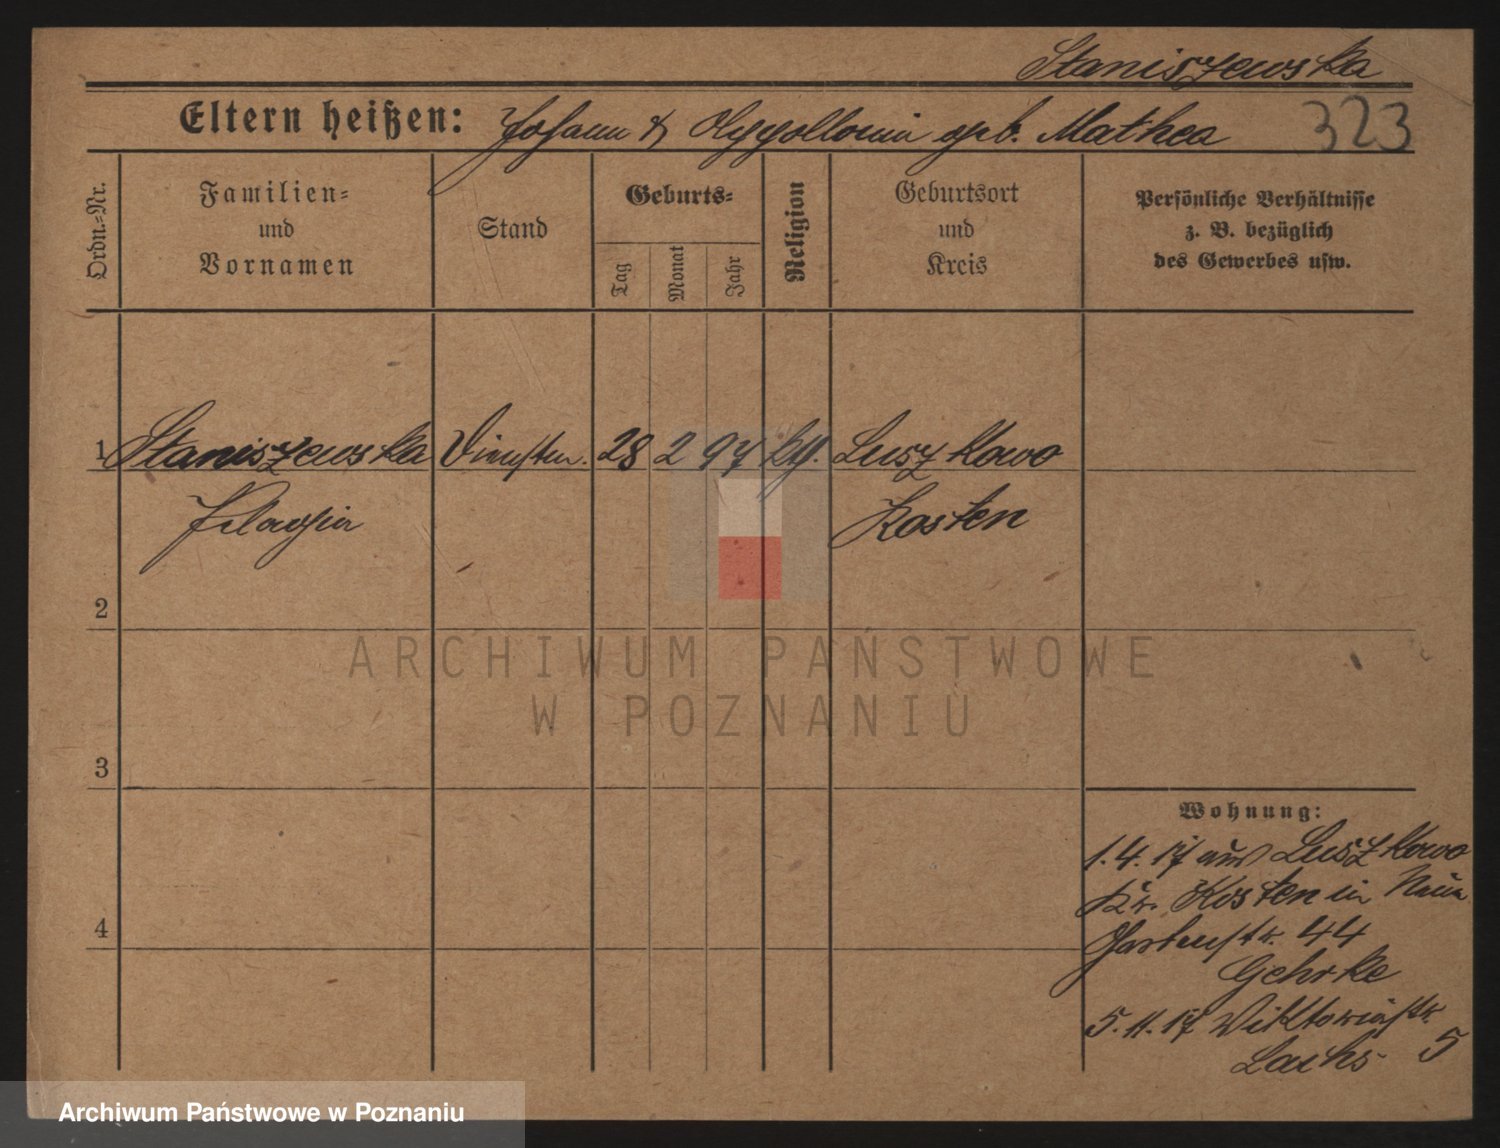 Staniszewska
Eltern heißen: Johann & Appollonia geb. Mathea
323
Ordn.=Nr.
Familien=
und
Vornamen
Stand
Geburts=
Tag
Monat
Jahr
Religion
Geburtsort
und
Kreis
Persönliche Verhältnisse
z. B. bezüglich
des Gewerbes usw.
1 Staniszewska Dienstm. 28 2 97 kth. Luszkowo
Pelagia Kosten
2
ARCHIWUM PAŃSTWOWE
W POZNANIU
3
Wohnung:
1.4.17 aus Luszkowo
Kr. Kosten in
4
Gartenstr. 44
Gehrke
5.11.17 Viktoriastr. 5
Lachs
Archiwum Państwowe w Poznaniu